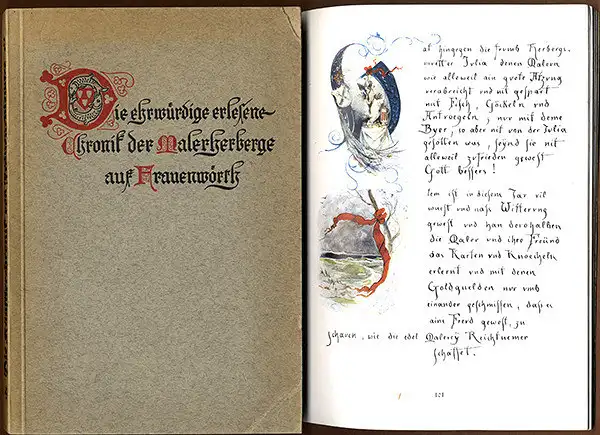 Die ehrwürdige erlesene
Chronik der Malerherberge
auf Frauenwörth
at hingegen die frumb Herbergs-
muetter Julia denen Malern
wie alleweil ain guete Atzung
verabreicht und nit gespart
mit Fisch, Göikeln vnd
Antvoegeln, nur mit deme
Byer, so aber nit von der Julia
gesotten was, seynd sie nit
alleweil zufrieden gewest
Gott bessers!
tem ist in diesem Jar vil
wuest vnd naß Witterung
gewest vnd han derohalben
die Maler vnd ihre Freünd
das Karten vnd Knoecheln
erlernt vnd mit denen
Goldguelden nur vmb
einander geschmissen, daß es
ain Freud gewest, zu
schaven, wie die edel Malerey Reichtuemer
schaffet.
121